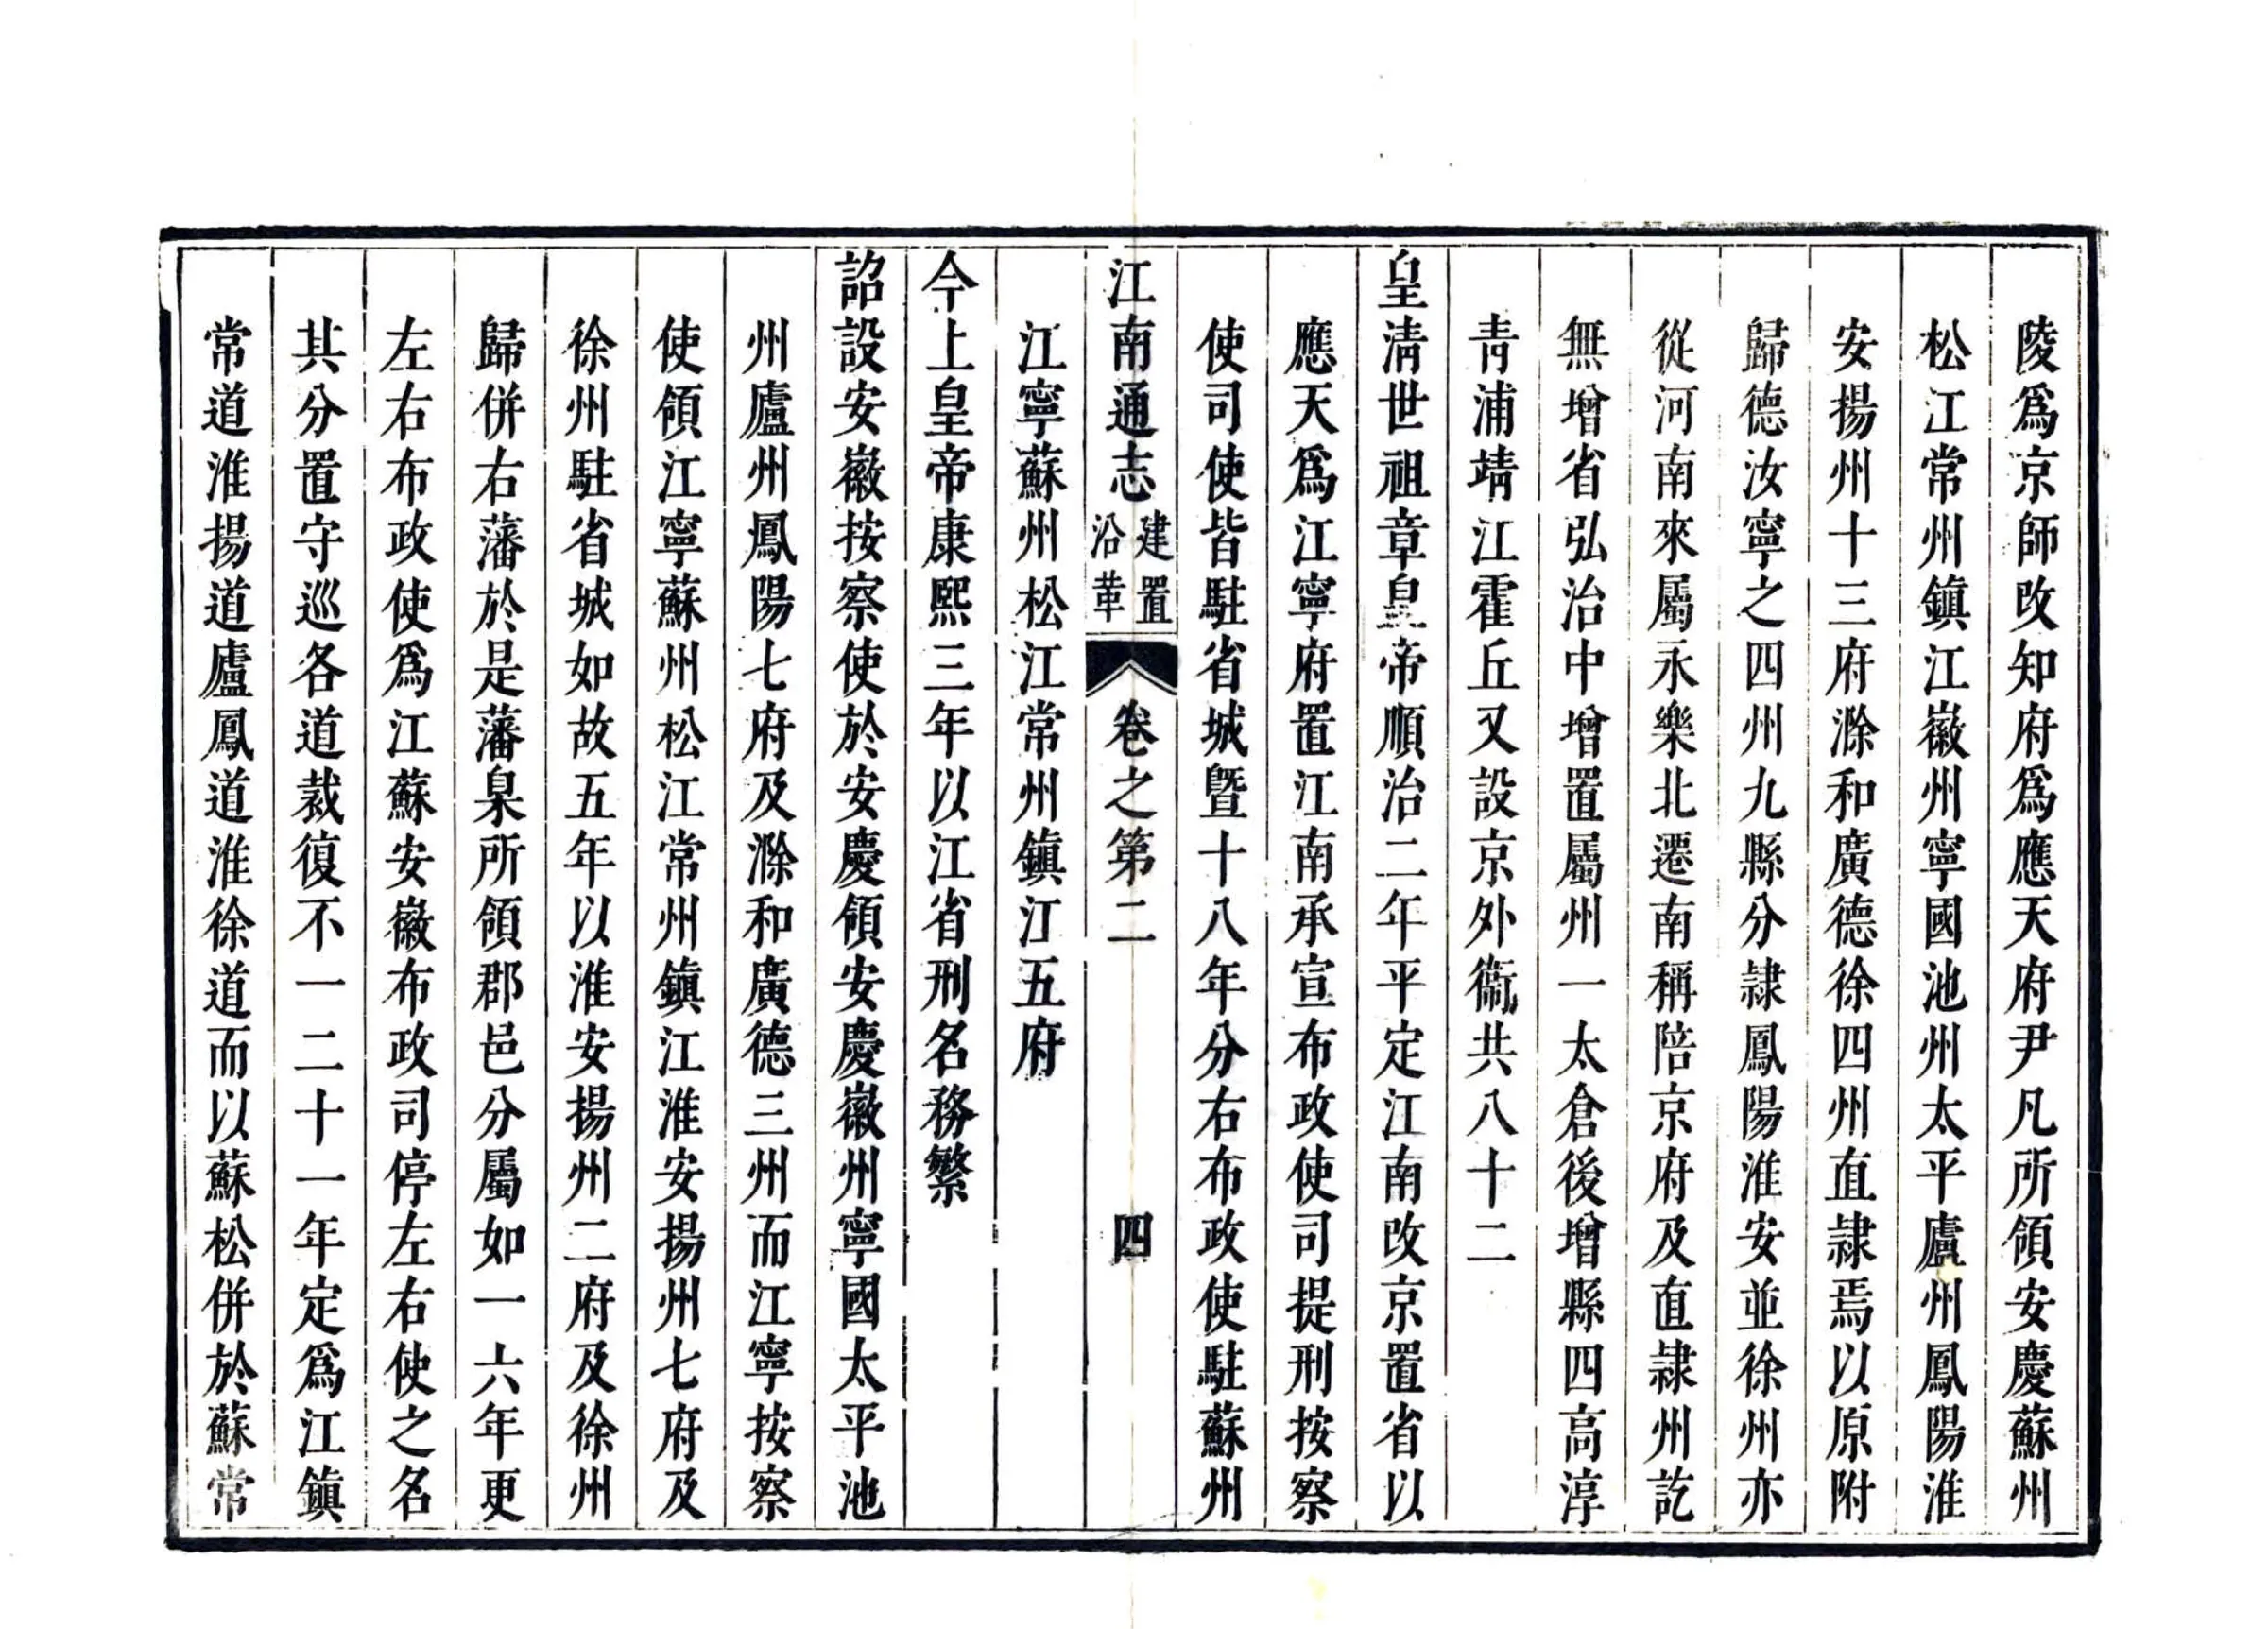 陵爲京師改知府爲應天府尹凡所領安慶蘇州
松江常州鎮江徽州寧國池州太平廬州鳳陽淮
安揚州十三府滁和廣德徐四州直隷焉以原附
歸德汝寧之四州九縣分隷鳳陽淮安並徐州亦
從河南來屬永樂北遷南稱陪京府及直隷州訖
無增省弘治中增置屬州一太倉後增縣四高淳
青浦靖江霍丘又設京外衞共八十二
皇清世祖章皇帝順治二年平定江南改京置省以
應天爲江寧府置江南承宣布政使司提刑按察
使司使皆駐省城曁十八年分右布政使駐蘇州
江南通志 建置沿革 卷之第二 四
江寧蘇州松江常州鎮江五府
今上皇帝康熙三年以江省刑名務繁
詔設安徽按察使於安慶領安慶徽州寧國太平池
州廬州鳳陽七府及滁和廣德三州而江寧按察
使領江寧蘇州松江常州鎮江淮安揚州七府及
徐州駐省城如故五年以淮安揚州二府及徐州
歸併右藩於是藩臬所領郡邑分屬如一六年更
左右布政使爲江蘇安徽布政司停左右使之名
其分置守巡各道裁復不一二十一年定爲江鎮
常道淮揚道廬鳳道淮徐道而以蘇松併於蘇常